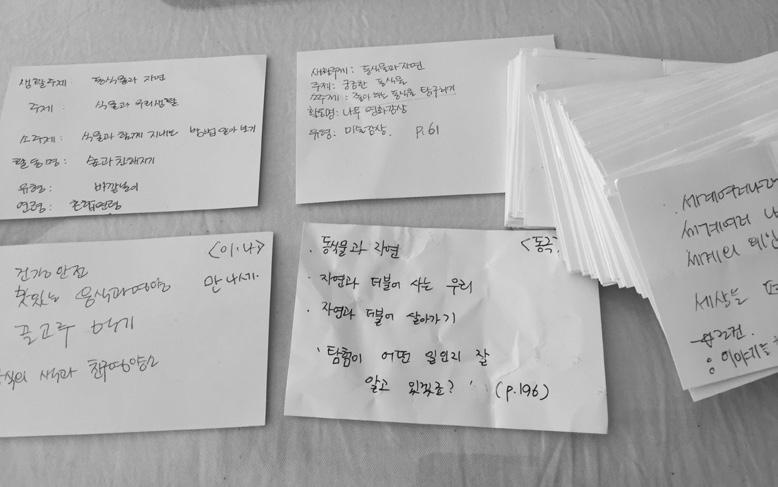 생활주제 : 동식물과 자연
주제 : 식물과 우리생활
소주제 : 식물과 함께 지내는 방법 알아보기
활동명 : 숲과 친해지기
유형 : 바깥놀이
연령 : 혼합연령
생활주제 : 동식물과 자연
주제 : 궁금한 동식물
소주제 : 동식물 탐구하기
활동명 : 나무 명화감상
유형 : 미술감상. P.61
<이·나>
건강 안전
맛있는 음식과 영양
골고루 먹기
친구
<동극>
· 동식물과 자연
· 자연과 더불어 사는 우리
· 자연과 더불어 살아가기
· 탐험이 어떤 일인지 잘
알고 있겠죠? (p.196)
· 세계여러나라
세계여러 나
세계의
세상을
이야기